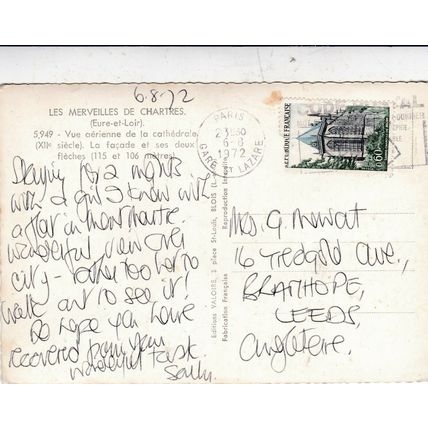 6.8.72
LES MERVEILLES DE CHARTRES
(Eure-et-Loir).
5,949 - Vue aérienne de la cathédrale
(XIIe siècle). La façade et ses deux
flèches (115 et 106 mètres)
Staying for 2 nights
with a girl I know with
a flat in Montmartre.
Wonderful view over
city - rather too hot to
walk out to see it!
Do hope you have
recovered from your
task.
Sally.
Editions VALOIRE, 3 place St-Louis, BLOIS
Fabrication Française
Reproduction
PARIS
6-8
1972
GARE ST LAZARE
REPUBLIQUE FRANÇAISE
0,60
Mrs. G. Mowat
16 Tredgold Ave.,
BRAMHOPE,
LEEDS,
Angleterre.